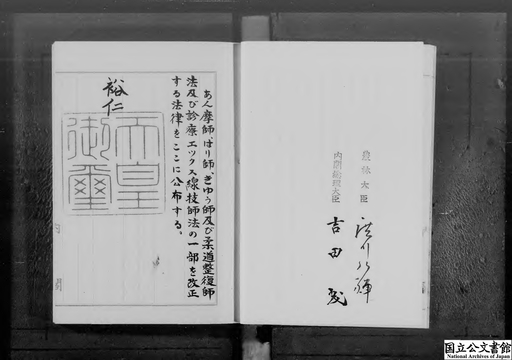 農林大臣
内閣総理大臣
吉田茂
あん摩師、はり師、きゆう師及び柔道整復師
法及び診療エックス線技師法の一部を改正
する法律をここに公布する。
裕仁
天皇
御璽
国立公文書館
National Archives of Japan